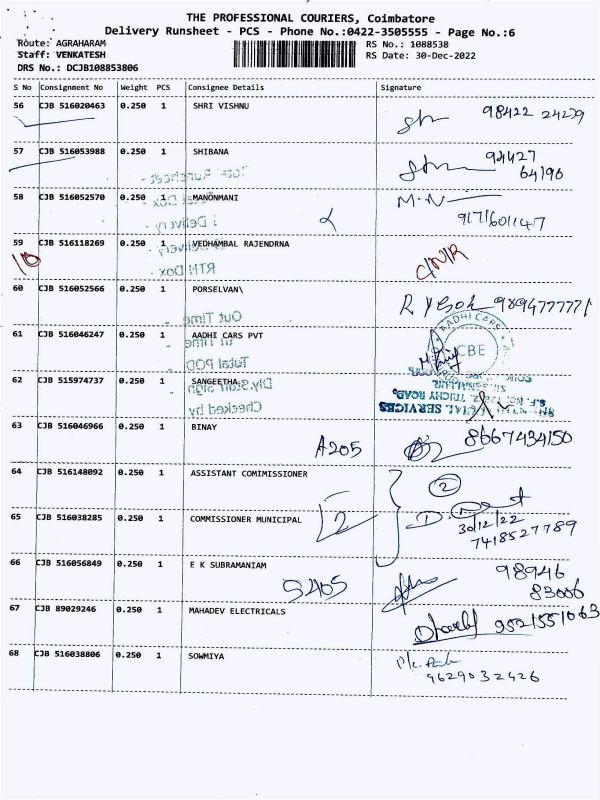 THE PROFESSIONAL COURIERS, Coimbatore
Delivery Runsheet - PCS - Phone No.:0422-3505555 - Page No.:6
Route: AGRAHARAM
Staff: VENKATESH
DRS No.: DCJB108853806
RS No.: 1088538
RS Date: 30-Dec-2022
S No Consignment No Weight PCS Consignee Details Signature
56 CJB 516020463 0.250 1 SHRI VISHNU 98422 24239
57 CJB 516053988 0.250 1 SHIBANA 94427
64196
58 CJB 516052570 0.250 1 MANONMANI M.N
9171601147
59 CJB 516118269 0.250 1 VEDHAMBAL RAJENDRNA
10 C/N/R
60 CJB 516052566 0.250 1 PORSELVAN\ 9894777771
Out Time
61 CJB 516046247 0.250 1 AADHI CARS PVT AADHI CARS
In Time CBE
Total POD
62 CJB 515974737 0.250 1 SANGEETHA
Dly.Staff Sign
S.F. NO. TRICHY ROAD,
Checked by
63 CJB 516046966 0.250 1 BINAY
A205 8667434150
64 CJB 516148092 0.250 1 ASSISTANT COMIMISSIONER 2
65 CJB 516038285 0.250 1 COMMISSIONER MUNICIPAL 2
30/12/22
7418527789
66 CJB 516056849 0.250 1 E K SUBRAMANIAM 98946
S405 83006
67 CJB 89029246 0.250 1 MAHADEV ELECTRICALS
9521551063
68 CJB 516038806 0.250 1 SOWMIYA
9629032426